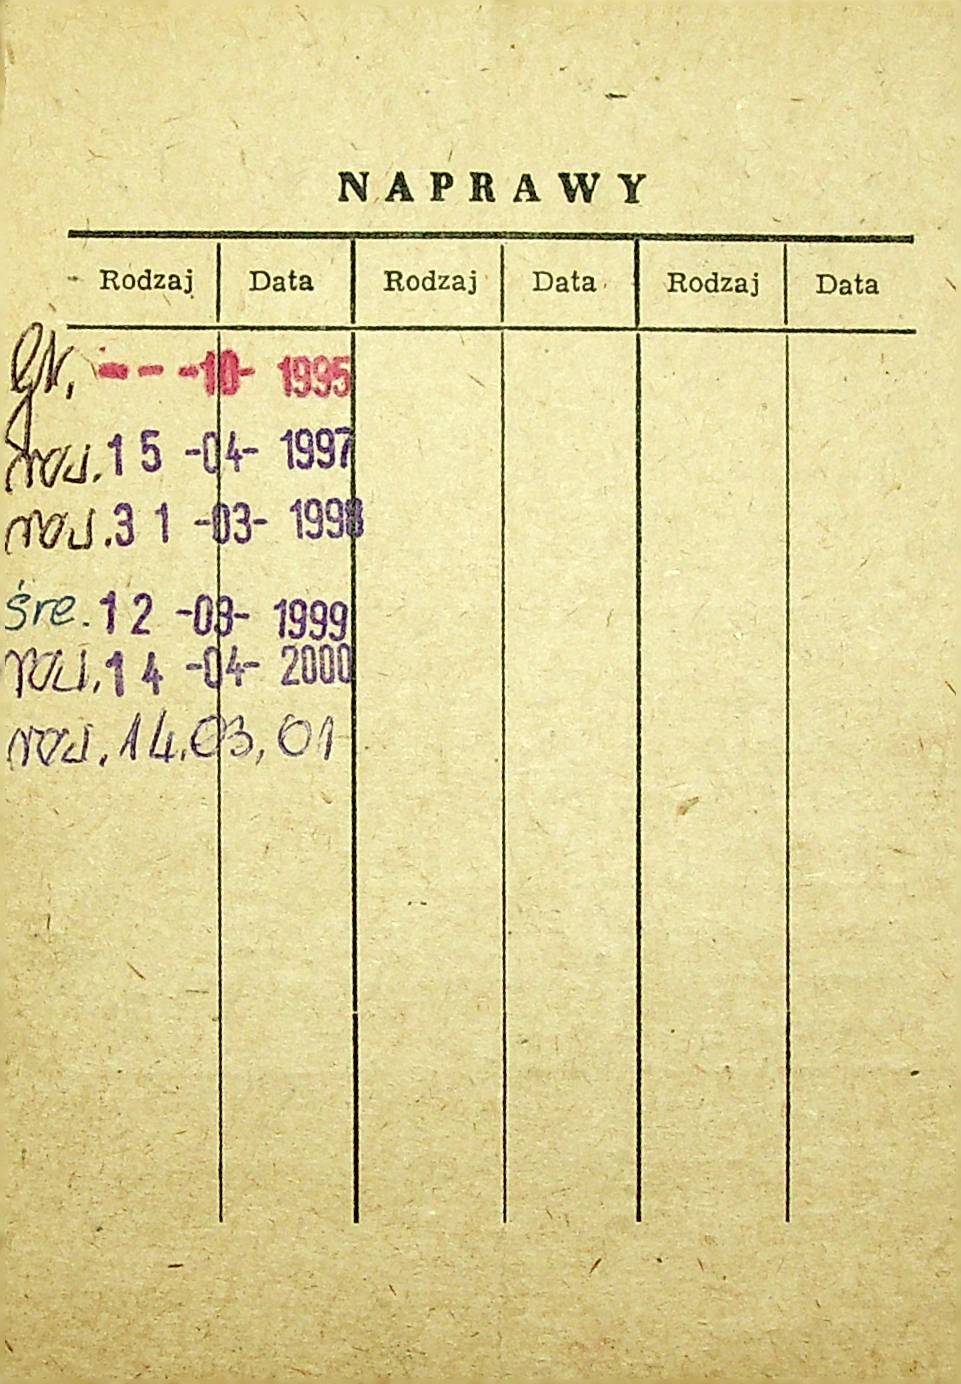 NAPRAWY
Rodzaj Data Rodzaj Data Rodzaj Data
gł. - - -10- 1995
15 -04- 1997
31 -03- 1998
śre. 12 -03- 1999
14 -04- 2000
14.03,01